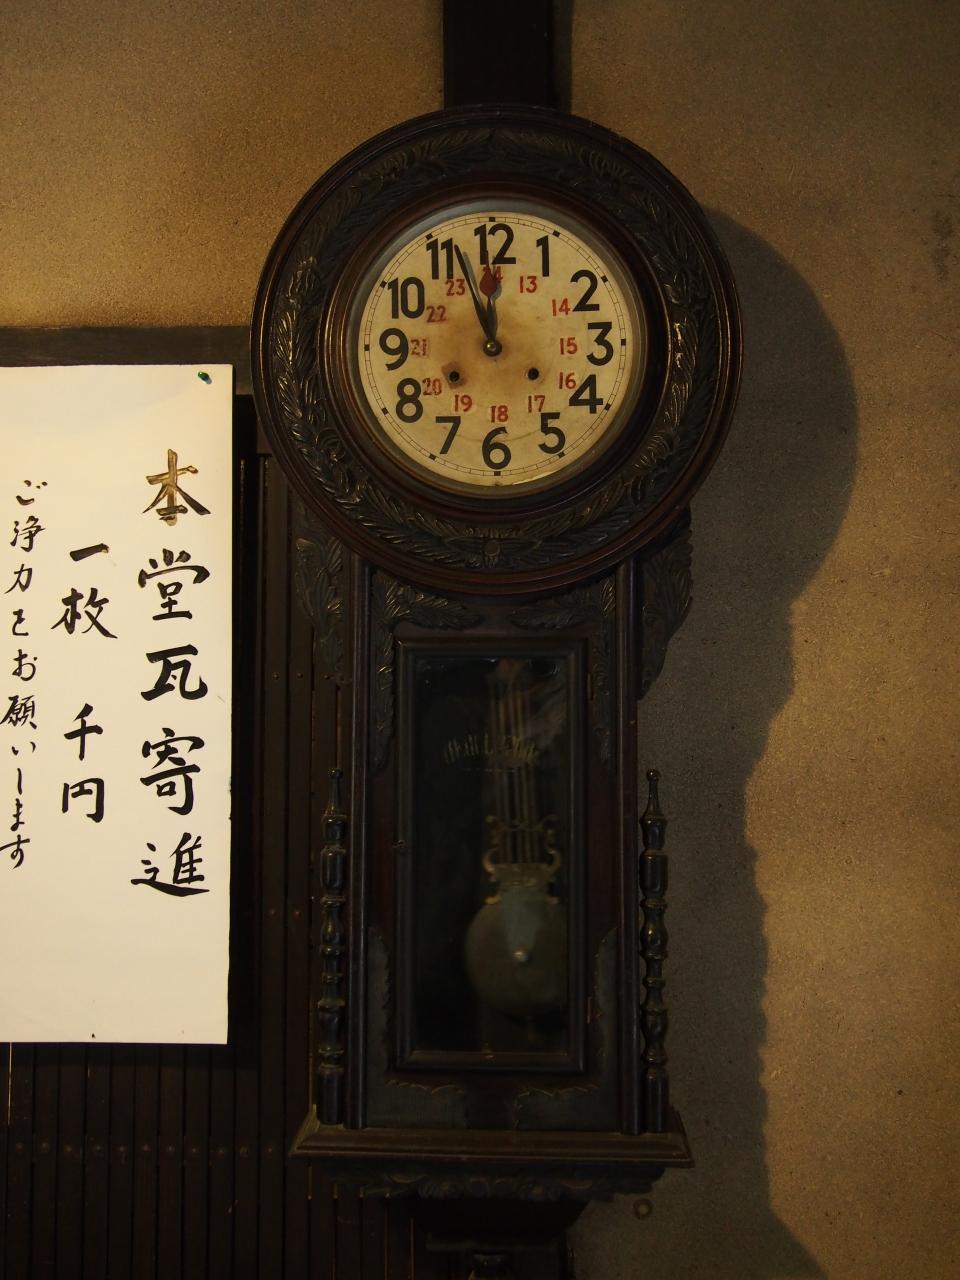 本堂瓦寄進
一枚 千円
ご浄力をお願いします
12
1
2
3
4
5
6
7
8
9
10
11
24
13
14
15
16
17
18
19
20
21
22
23